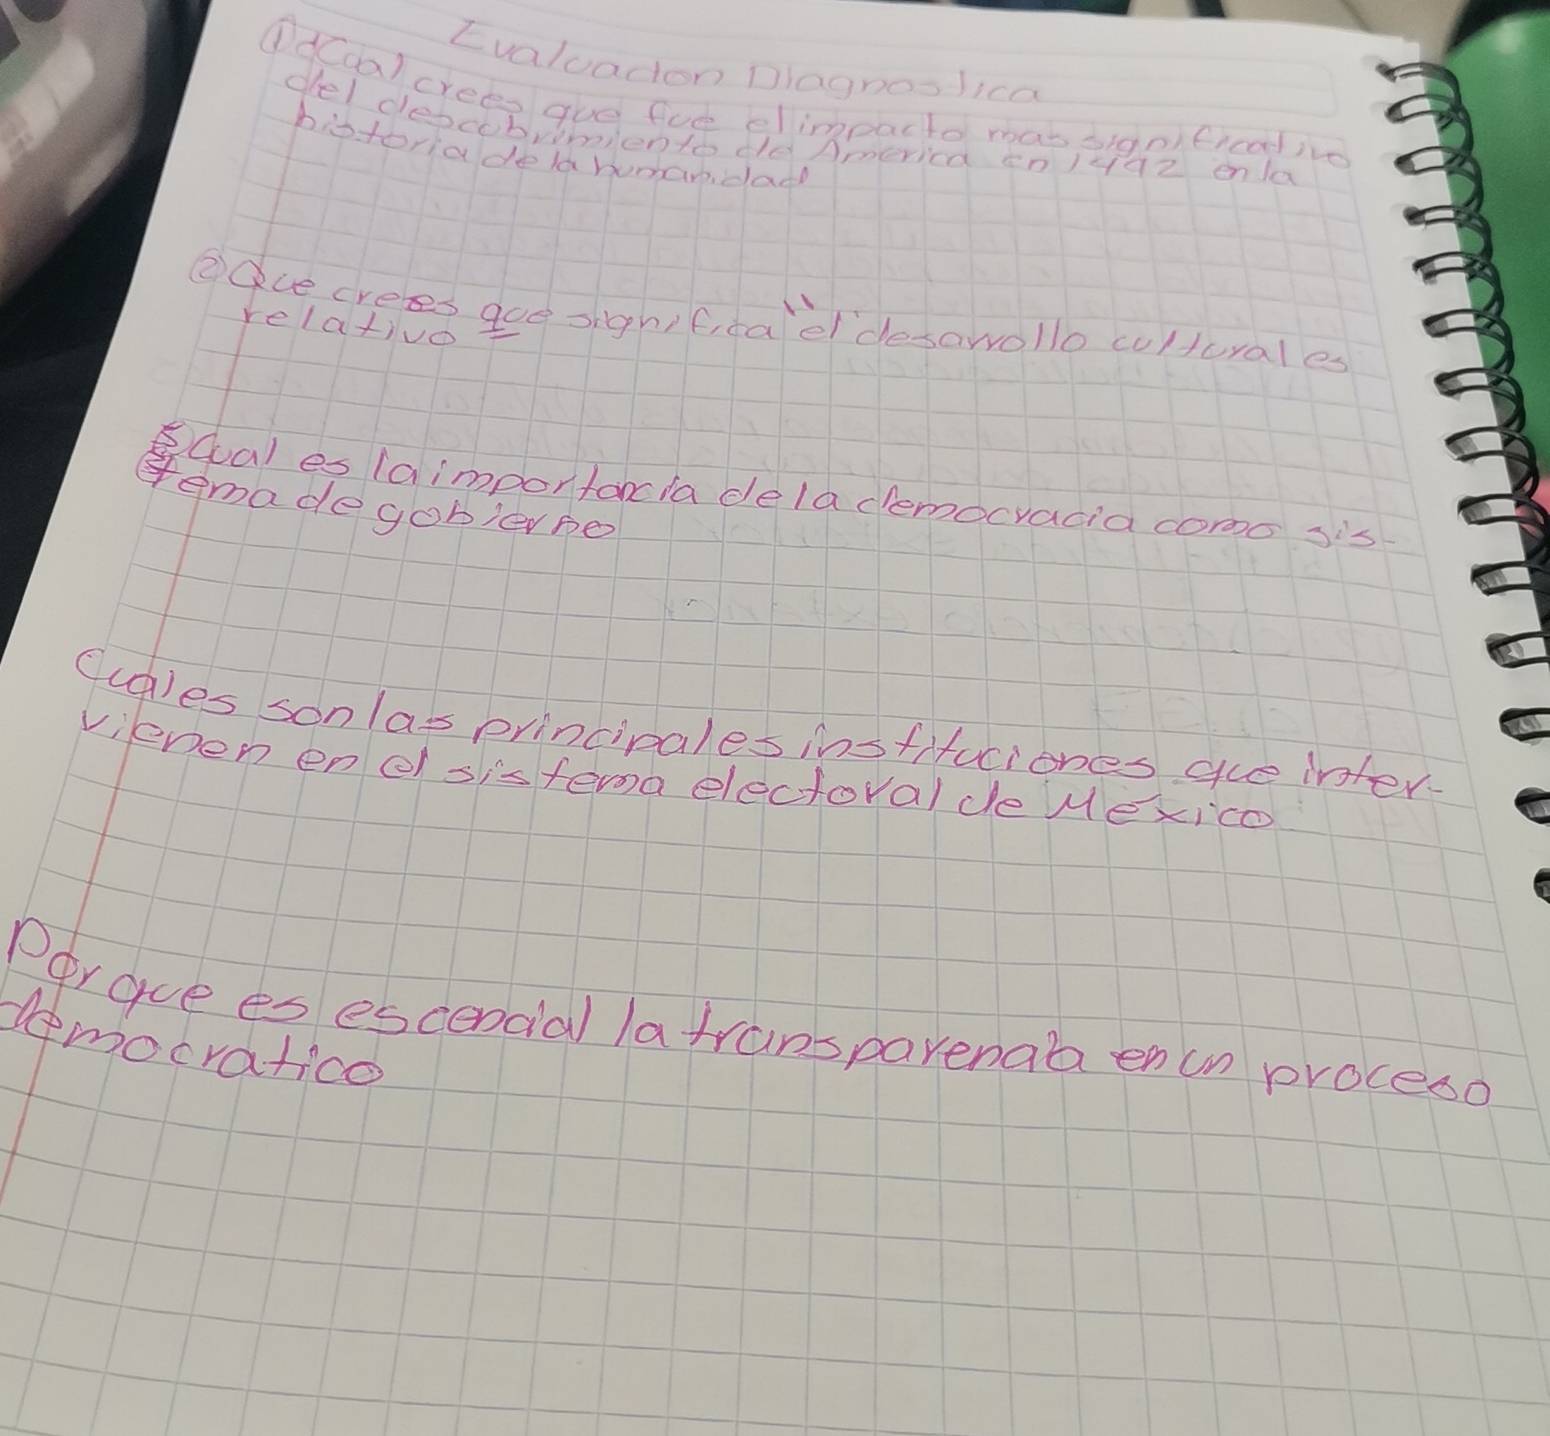 Evaluacion Diagnostica
① ¿Cual crees que fue el impacto mas significativo
del descubrimiento de America en 1492 en la
historia de la humanidad
② Que crees que significa "el desarrollo cultural es
relativo"
Cual es la importancia de la democracia como sis-
tema de gobierno
Cuales son las principales instituciones que inter-
vienen en el sistema electoral de México
Por que es escencial la transparencia en un proceso
democratico